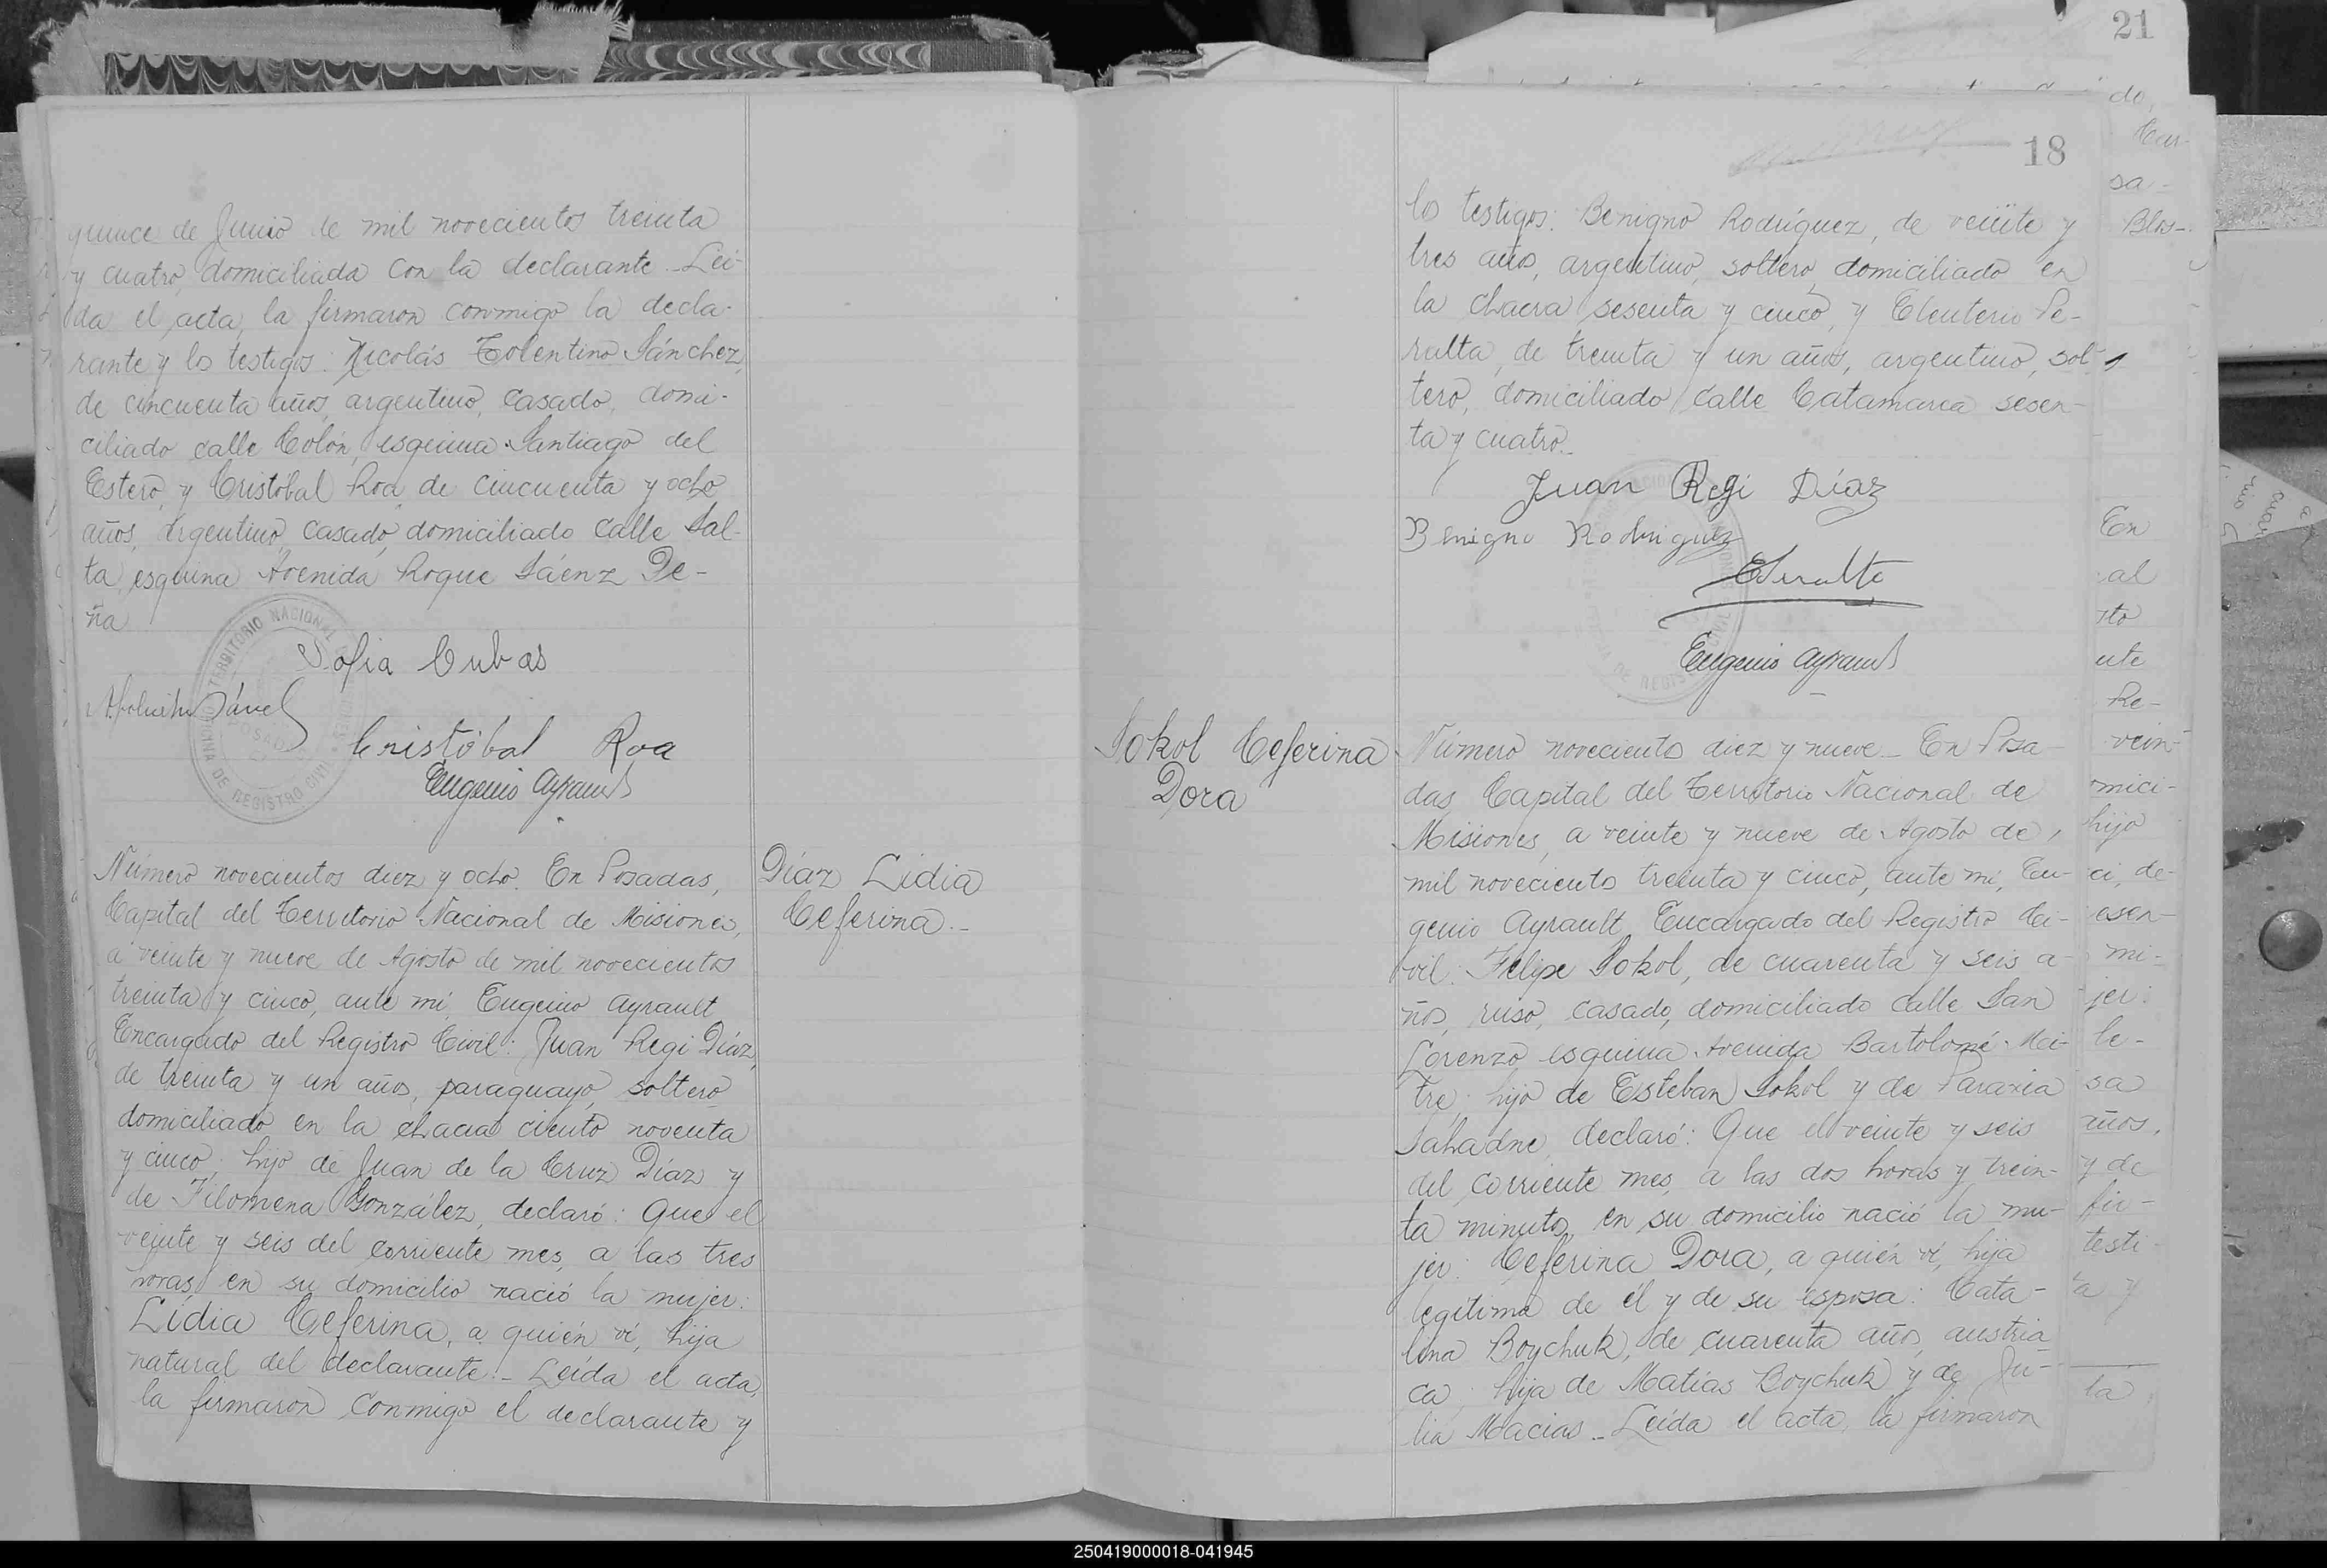 quince de Junio de mil novecientos treinta
y cuatro, domiciliada con la declarante. Lei-
da el acta, la firmaron conmigo la decla-
rante y los testigos: Nicolás Tolentino Sánchez,
de cincuenta años, argentino, casado, domi-
ciliado calle Colón, esquina Santiago del
Estero, y Cristóbal Roa, de cincuenta y ocho
años, argentino, casado, domiciliado calle Sal-
ta, esquina Avenida Roque Sáenz Pe-
ña
TERRITORIO NACIONAL
Sofia Cubas
Cristóbal Roa
Eugenio Ayrault
DE REGISTRO CIVIL
Número novecientos diez y ocho. En Posadas,
Capital del Territorio Nacional de Misiones,
a veinte y nueve de Agosto de mil novecientos
treinta y cinco, ante mi, Eugenio Ayrault
Encargado del Registro Civil: Juan Regi Díaz,
de treinta y un años, paraguayo, soltero
domiciliado en la chacra ciento noventa
y cinco; hijo de Juan de la Cruz Díaz y
de Filomena González, declaró: Que el
veinte y seis del corriente mes, a las tres
horas, en su domicilio nació la mujer:
Lidia Ceferina, a quién ví, hija
natural del declarante.- Leída el acta,
la firmaron conmigo el declarante y
Díaz Lidia
Ceferina.-
18
los testigos: Benigno Rodríguez, de veinte y
tres años, argentino, soltero, domiciliado en
la chacra sesenta y cinco, y Eleuterio Pe-
ralta, de treinta y un años, argentino, sol-
tero, domiciliado calle Catamarca sesen-
ta y cuatro.-
Juan Regi Díaz
Benigno Rodriguez
EPeralta
Eugenio Ayrault
Sokol Ceferina
Dora
Número novecientos diez y nueve - En Posa-
das Capital del Territorio Nacional de
Misiones, a veinte y nueve de Agosto de
mil novecientos treinta y cinco, ante mi, Eu-
genio Ayrault Encargado del Registro Ci-
vil: Felipe Sokol, de cuarenta y seis a-
ños, ruso, casado, domiciliado calle San
Lorenzo esquina Avenida Bartolomé Mi-
tre; hijo de Esteban Sokol y de Paraxia
Sahadne, declaró: Que el veinte y seis
del corriente mes, a las dos horas y trein-
ta minutos, en su domicilio nació la mu-
jer: Ceferina Dora, a quién ví, hija
legítima de él y de su esposa: Cata-
lina Boychuk, de cuarenta años, austria-
ca; hija de Matías Boychuk y de Ju-
lia Macias - Leída el acta, la firmaron
21
do,
Car-
sa-
Blas-
En
al
ute
Re-
vein-
omici-
hijo
ci, de-
esen-
mi-
jer:
le-
sa
años,
y de
fir-
testi-
a y
la
250419000018-041945